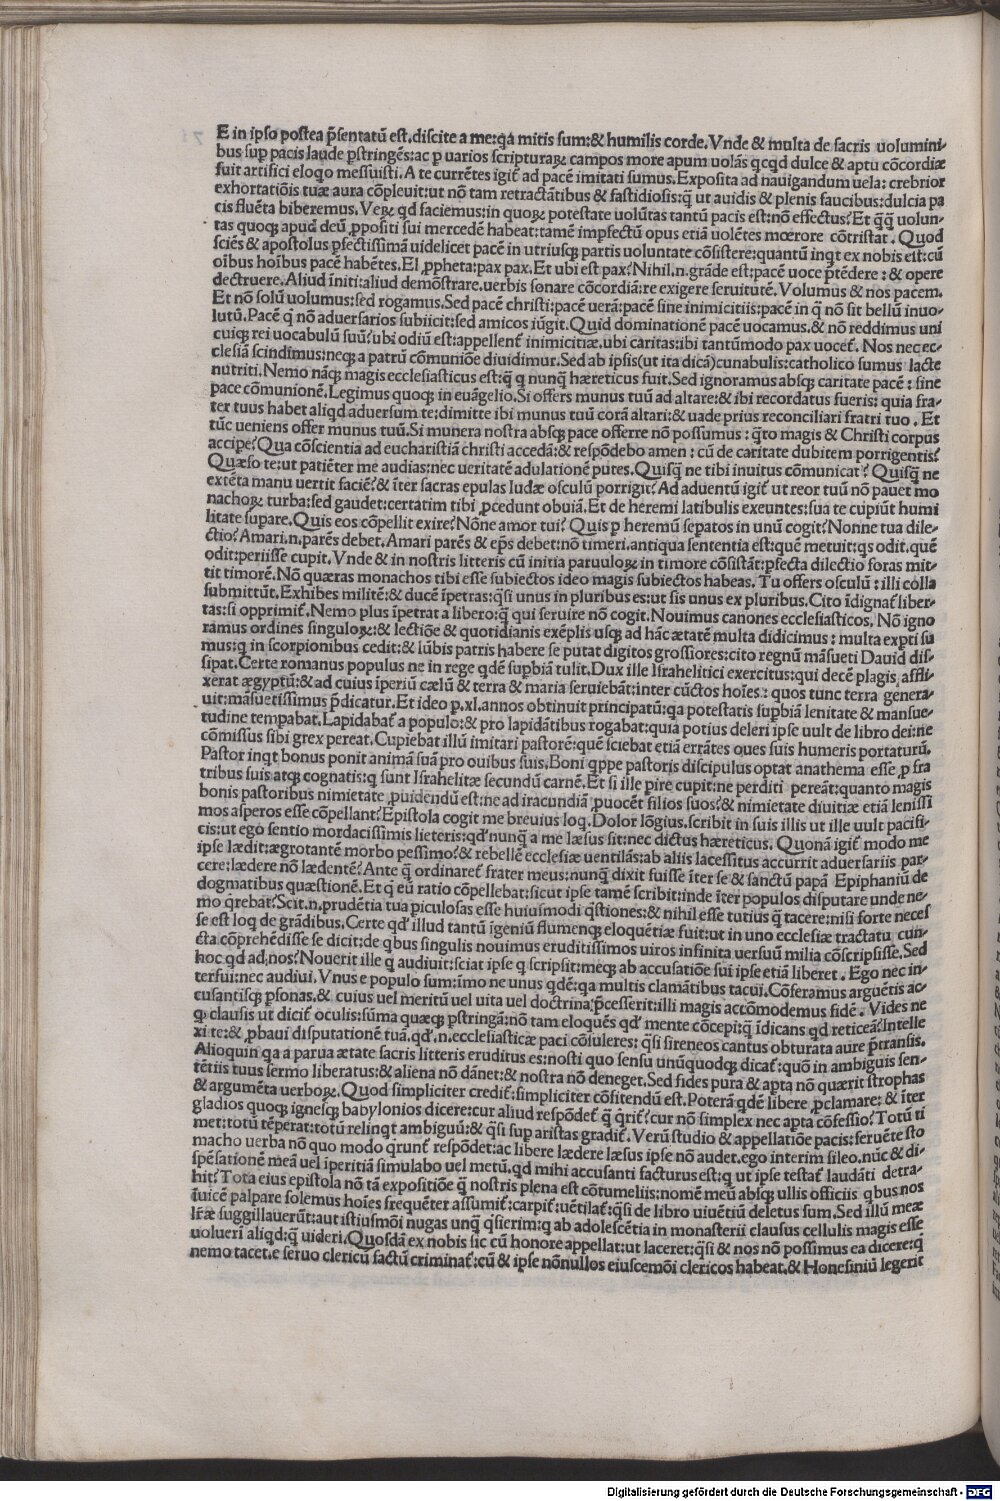 E in ipso postea p̃sentatũ est. discite a me: q̃a mitis sum: & humilis corde. Vnde & multa de sacris uolumini⸗
bus sup̱ pacis laude p̱stringẽs: ac p̱ uarios scripturaꝝ campos more apum uolãs qcqd dulce & aptũ cõcordiæ
fuit artifici eloqo messuisti. A te currẽtes igit᷑ ad pacẽ imitati sumus. Exposita ad nauigandum uela: crebrior
exhortatiõis tuæ aura cõpleuit: ut nõ tam retractãtibus & fastidiosis: q̃ ut auidis & plenis faucibus: dulcia pa
cis fluẽta biberemus. Veꝝ qd faciemus: in quoꝝ potestate uolũtas tantũ pacis est: nõ effectus? Et q̃q̃ uolun⸗
tas quoqꝫ apud deũ ꝓpositi sui mercedẽ habeat: tamẽ impfectũ opus etiã uolẽtes mœrore cõtristat. Quod
sciẽs & apostolus p̱fectissimã uidelicet pacẽ in utriusqꝫ partis uoluntate cõsistere: quantũ inqt ex nobis est: cũ
oĩbus hoĩbus pacẽ habẽtes. El ꝓpheta: pax pax. Et ubi est pax? Nihil. n. grãde est: pacẽ uoce p̃tẽdere: & opere
dectruere. Aliud ĩniti: aliud demõstrare. uerbis sonare cõcordiã: re exigere seruitutẽ. Volumus & nos pacem.
Et nõ solũ uolumus: sed rogamus. Sed pacẽ christi: pacẽ uerã: pacẽ sine inimicitiis: pacẽ in q̃ nõ sit bellũ inuo⸗
lutũ. Pacẽ q̃ nõ aduersarios subiicit: sed amicos iũgit. Quid dominationẽ pacẽ uocamus. & nõ reddimus uni
cuiqꝫ rei uocabulũ suũ? ubi odiũ est: appellent᷑ inimicitiæ. ubi caritas: ibi tantũmodo pax uocet᷑. Nos nec ec⸗
clesiã scindimus: neqꝫ a patrũ cõmuniõe diuidimur. Sed ab ipsis (ut ita dicã) cunabulis: catholico sumus lacte
nutriti. Nemo nãqꝫ magis ecclesiasticus est: q̃ q nunq̃ hæreticus fuit. Sed ignoramus absqꝫ caritate pacẽ: sine
pace cõmunionẽ. Legimus quoqꝫ in euãgelio. Si offers munus tuũ ad altare: & ibi recordatus fueris: quia fra⸗
ter tuus habet aliqd aduersum te: dimitte ibi munus tuũ corã altari: & uade prius reconciliari fratri tuo. Et
tũc ueniens offer munus tuũ. Si munera nostra absqꝫ pace offerre nõ possumus: q̃to magis & Christi corpus
accipe? Qua cõscientia ad eucharistiã christi accedã: & respõdebo amen: cũ de caritate dubitem porrigentis?
Quæso te: ut patiẽter me audias: nec ueritatẽ adulationẽ putes. Quisq̃ ne tibi inuitus cõmunicat? Quisq̃ ne
extẽta manu uertit faciẽ? & ĩter sacras epulas Iudæ osculũ porrigit? Ad aduentũ igit᷑ ut reor tuũ nõ pauet mo
nachoꝝ turba: sed gaudet: certatim tibi ꝓcedunt obuiã. Et de heremi latibulis exeuntes: sua te cupiũt humi
litate supare. Quis eos cõpellit exire? Nõne amor tui? Quis p̱ heremũ sepatos in unũ cogit? Nonne tua dile⸗
ctio? Amari. n. parẽs debet. Amari parẽs & ep̃s debet: nõ timeri. antiqua sententia est: quẽ metuit: qs odit. quẽ
odit: periisse cupit. Vnde & in nostris litteris cũ initia paruuloꝝ in timore cõsistãt: p̱fecta dilectio foras mit⸗
tit timorẽ. Nõ quæras monachos tibi esse subiectos ideo magis subiectos habeas. Tu offers osculũ: illi colla
submittũt. Exhibes militẽ: & ducẽ ĩpetras: q̃si unus in pluribus es: ut sis unus ex pluribus. Cito ĩdignat᷑ liber⸗
tas: si opprimit᷑. Nemo plus ĩpetrat a libero: q̃ qui seruire nõ cogit. Nouimus canones ecclesiasticos. Nõ igno
ramus ordines singuloꝝ: & lectiõe & quotidianis exẽplis usqꝫ ad hãc ætatẽ multa didicimus: multa expti su
mus: q in scorpionibus cedit: & lũbis patris habere se putat digitos grossiores: cito regnũ mãsueti Dauid dis⸗
sipat. Certe romanus populus ne in rege qdẽ supbiã tulit. Dux ille Israhelitici exercitus: qui decẽ plagis affli⸗
xerat ægyptũ: & ad cuius ĩperiũ cælũ & terra & maria seruiebãt: inter cũctos hoĩes: quos tunc terra genera⸗
uit: mãsuetissimus p̃dicatur. Et ideo p. xl. annos obtinuit principatũ: q̃a potestatis supbiã lenitate & mansue⸗
tudine tempabat. Lapidabat᷑ a populo: & pro lapidãtibus rogabat: quia potius deleri ipse uult de libro dei: ne
cõmissus sibi grex pereat. Cupiebat illũ imitari pastorẽ: quẽ sciebat etiã errãtes oues suis humeris portaturũ.
Pastor inqt bonus ponit animã suã pro ouibus suis. Boni qppe pastoris discipulus optat anathema esse ꝓ fra
tribus suis atqꝫ cognatis: q sunt Israhelitæ secundũ carnẽ. Et si ille pire cupit: ne perditi pereãt: quanto magis
bonis pastoribus nimietate ꝓuidendũ est: ne ad iracundiã ꝓuocẽt filios suos? & nimietate diuitiæ etiã lenissi
mos asperos esse cõpellant? Epistola cogit me breuius loq. Dolor lõgius. scribit in suis illis ut ille uult pacifi⸗
cis: ut ego sentio mordacissimis lieteris: qd' nunq̃ a me læsus sit: nec dictus hæreticus. Quonã igit᷑ modo me
ipse lædit: ægrotantẽ morbo pessimo? & rebellẽ ecclesiæ uentilãs: ab aliis lacessitus accurrit aduersariis par⸗
cere: lædere nõ lædentẽ? Ante q̃ ordinaret᷑ frater meus: nunq̃ dixit fuisse ĩter se & sanctũ papã Epiphaniũ de
dogmatibus quæstionẽ. Et q̃ eũ ratio cõpellebat: sicut ipse tamẽ scribit: inde ĩter populos disputare unde ne⸗
mo q̃rebat? Scit. n. prudẽtia tua piculosas esse huiusmodi q̃stiones: & nihil esse tutius q̃ tacere: nisi forte neces
se est loq de grãdibus. Certe qd' illud tantũ ĩgeniũ flumenqꝫ eloquẽtiæ fuit: ut in uno ecclesiæ tractatu cun⸗
cta cõprehẽdisse se dicit: de qbus singulis nouimus eruditissimos uiros infinita uersuũ milia cõscripsisse. Sed
hoc qd ad nos? Nouerit ille q audiuit: sciat ipse q scripsit: meqꝫ ab accusatiõe sui ipse etiã liberet. Ego nec in⸗
terfui: nec audiui. Vnus e populo sum: ĩmo ne unus qdẽ: q̃a multis clamãtibus tacui. Cõferamus arguẽtis ac⸗
cusantisqꝫ p̱sonas. & cuius uel meritũ uel uita uel doctrina p̃cesserit: illi magis accõmodemus fidẽ. Vides ne
qꝫ clausis ut dicit᷑ oculis: sũma quæqꝫ p̱stringã: nõ tam eloquẽs qd' mente cõcepi: q̃ ĩdicans qd reticeã? Intelle
xi te: & ꝓbaui disputationẽ tuã. qd'. n. ecclesiasticæ paci cõsuleres: q̃si sireneos cantus obturata aure p̃transis.
Alioquin q̃a a parua ætate sacris litteris eruditus es: nosti quo sensu unũquodqꝫ dicat᷑: quõ in ambiguis sen⸗
tẽtiis tuus sermo liberatus: & aliena nõ dãnet: & nostra nõ deneget. Sed fides pura & apta nõ quærit strophas
& argumẽta uerboꝝ. Quod simpliciter credit᷑: simpliciter cõfitendũ est. Poterã qdẽ libere ꝓclamare: & ĩter
gladios quoqꝫ ignesqꝫ babylonios dicere: cur aliud respõdet᷑ q̃ q̃rit᷑? cur nõ simplex nec apta cõfessio? Totũ ti
met: totũ tẽperat: totũ relinqt ambiguũ: & q̃si sup̱ aristas gradit᷑. Verũ studio & appellatiõe pacis: feruẽte sto
macho uerba nõ quo modo q̃runt᷑ respõdet: ac libere lædere læsus ipse nõ audet. ego interim sileo. nũc & di⸗
spẽsationẽ meã uel ĩperitiã simulabo uel metũ. qd mihi accusanti facturus est: q ut ipse testat᷑ laudãti detra⸗
hit? Tota eius epistola nõ tã expositiõe q̃ nostris plena est cõtumeliis: nomẽ meũ absqꝫ ullis officiis qbus nos
ĩuicẽ palpare solemus hoĩes frequẽter assumit᷑: carpit᷑: uẽtilat᷑: q̃si de libro uiuẽtiũ deletus sum. Sed illũ meæ
lr̃æ suggillauerũt: aut istiusmõi nugas unq̃ q̃sierim: q ab adolescẽtia in monasterii clausus cellulis magis esse
uolueri aliqd: q̃ uideri. Quosdã ex nobis sic cũ honore appellat: ut laceret: q̃si & nos nõ possimus ea dicere: q̃
nemo tacet. e seruo clericũ factũ criminat᷑: cũ & ipse nõnullos eiuscemõi clericos habeat. & Honesiniũ legerit
Digitalisierung gefördert durch die Deutsche Forschungsgemeinschaft - DFG